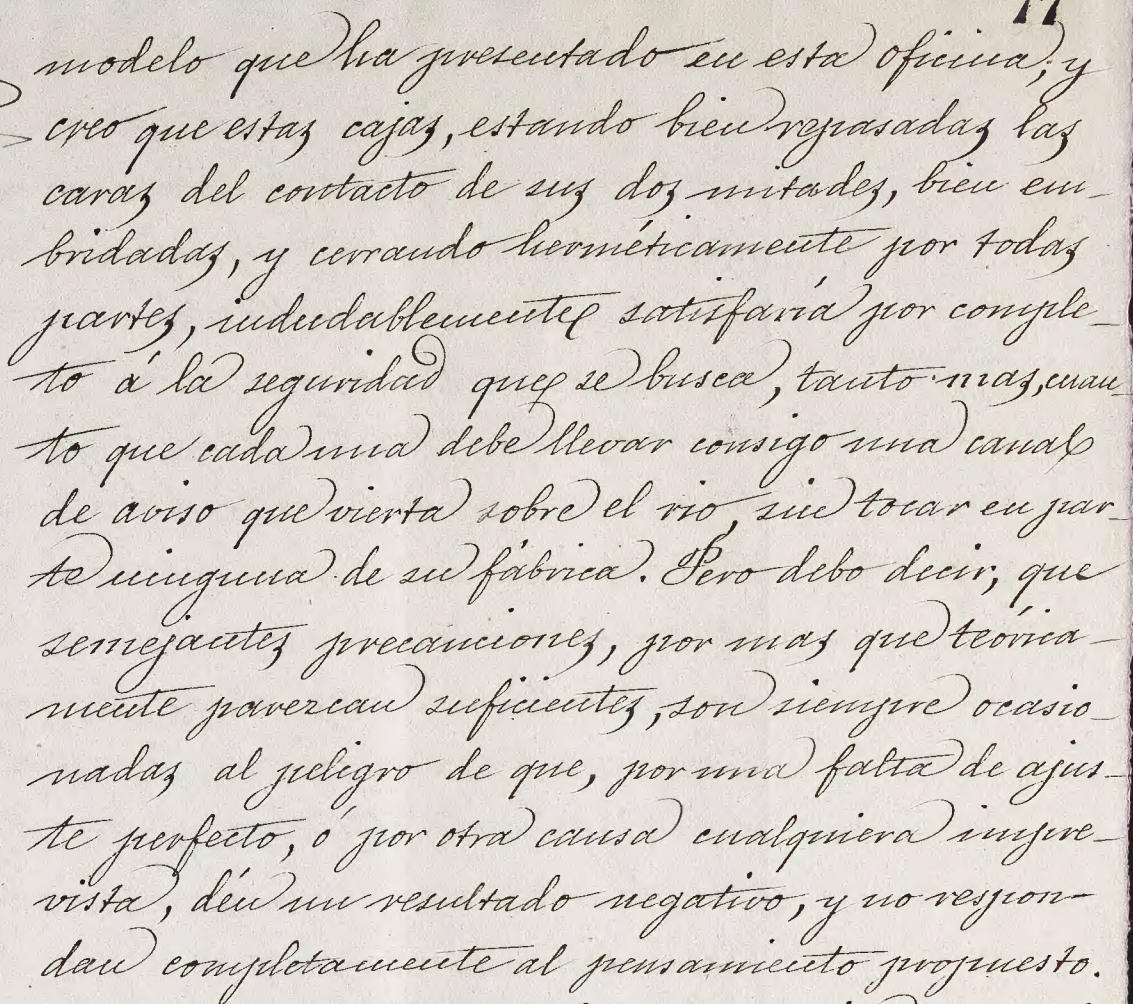 modelo que ha presentado en esta oficina; y
creo que estas cajas, estando bien repasadas las
caras del contacto de sus dos mitades, bien em-
bridadas, y cerrando herméticamente por todas
partes, indudablemente satisfaría por comple-
to á la seguridad que se busca, tanto mas, cuan-
to que cada una debe llevar consigo una canal
de aviso que vierta sobre el rio, sin tocar en par-
te ninguna de su fábrica. Pero debo decir, que
semejantes precauciones, por mas que teórica-
mente parezcan suficientes, son siempre ocasio-
nadas al peligro de que, por una falta de ajus-
te perfecto, ó por otra causa cualquiera impre-
vista, dén un resultado negativo, y no respon-
dan completamente al pensamiento propuesto.